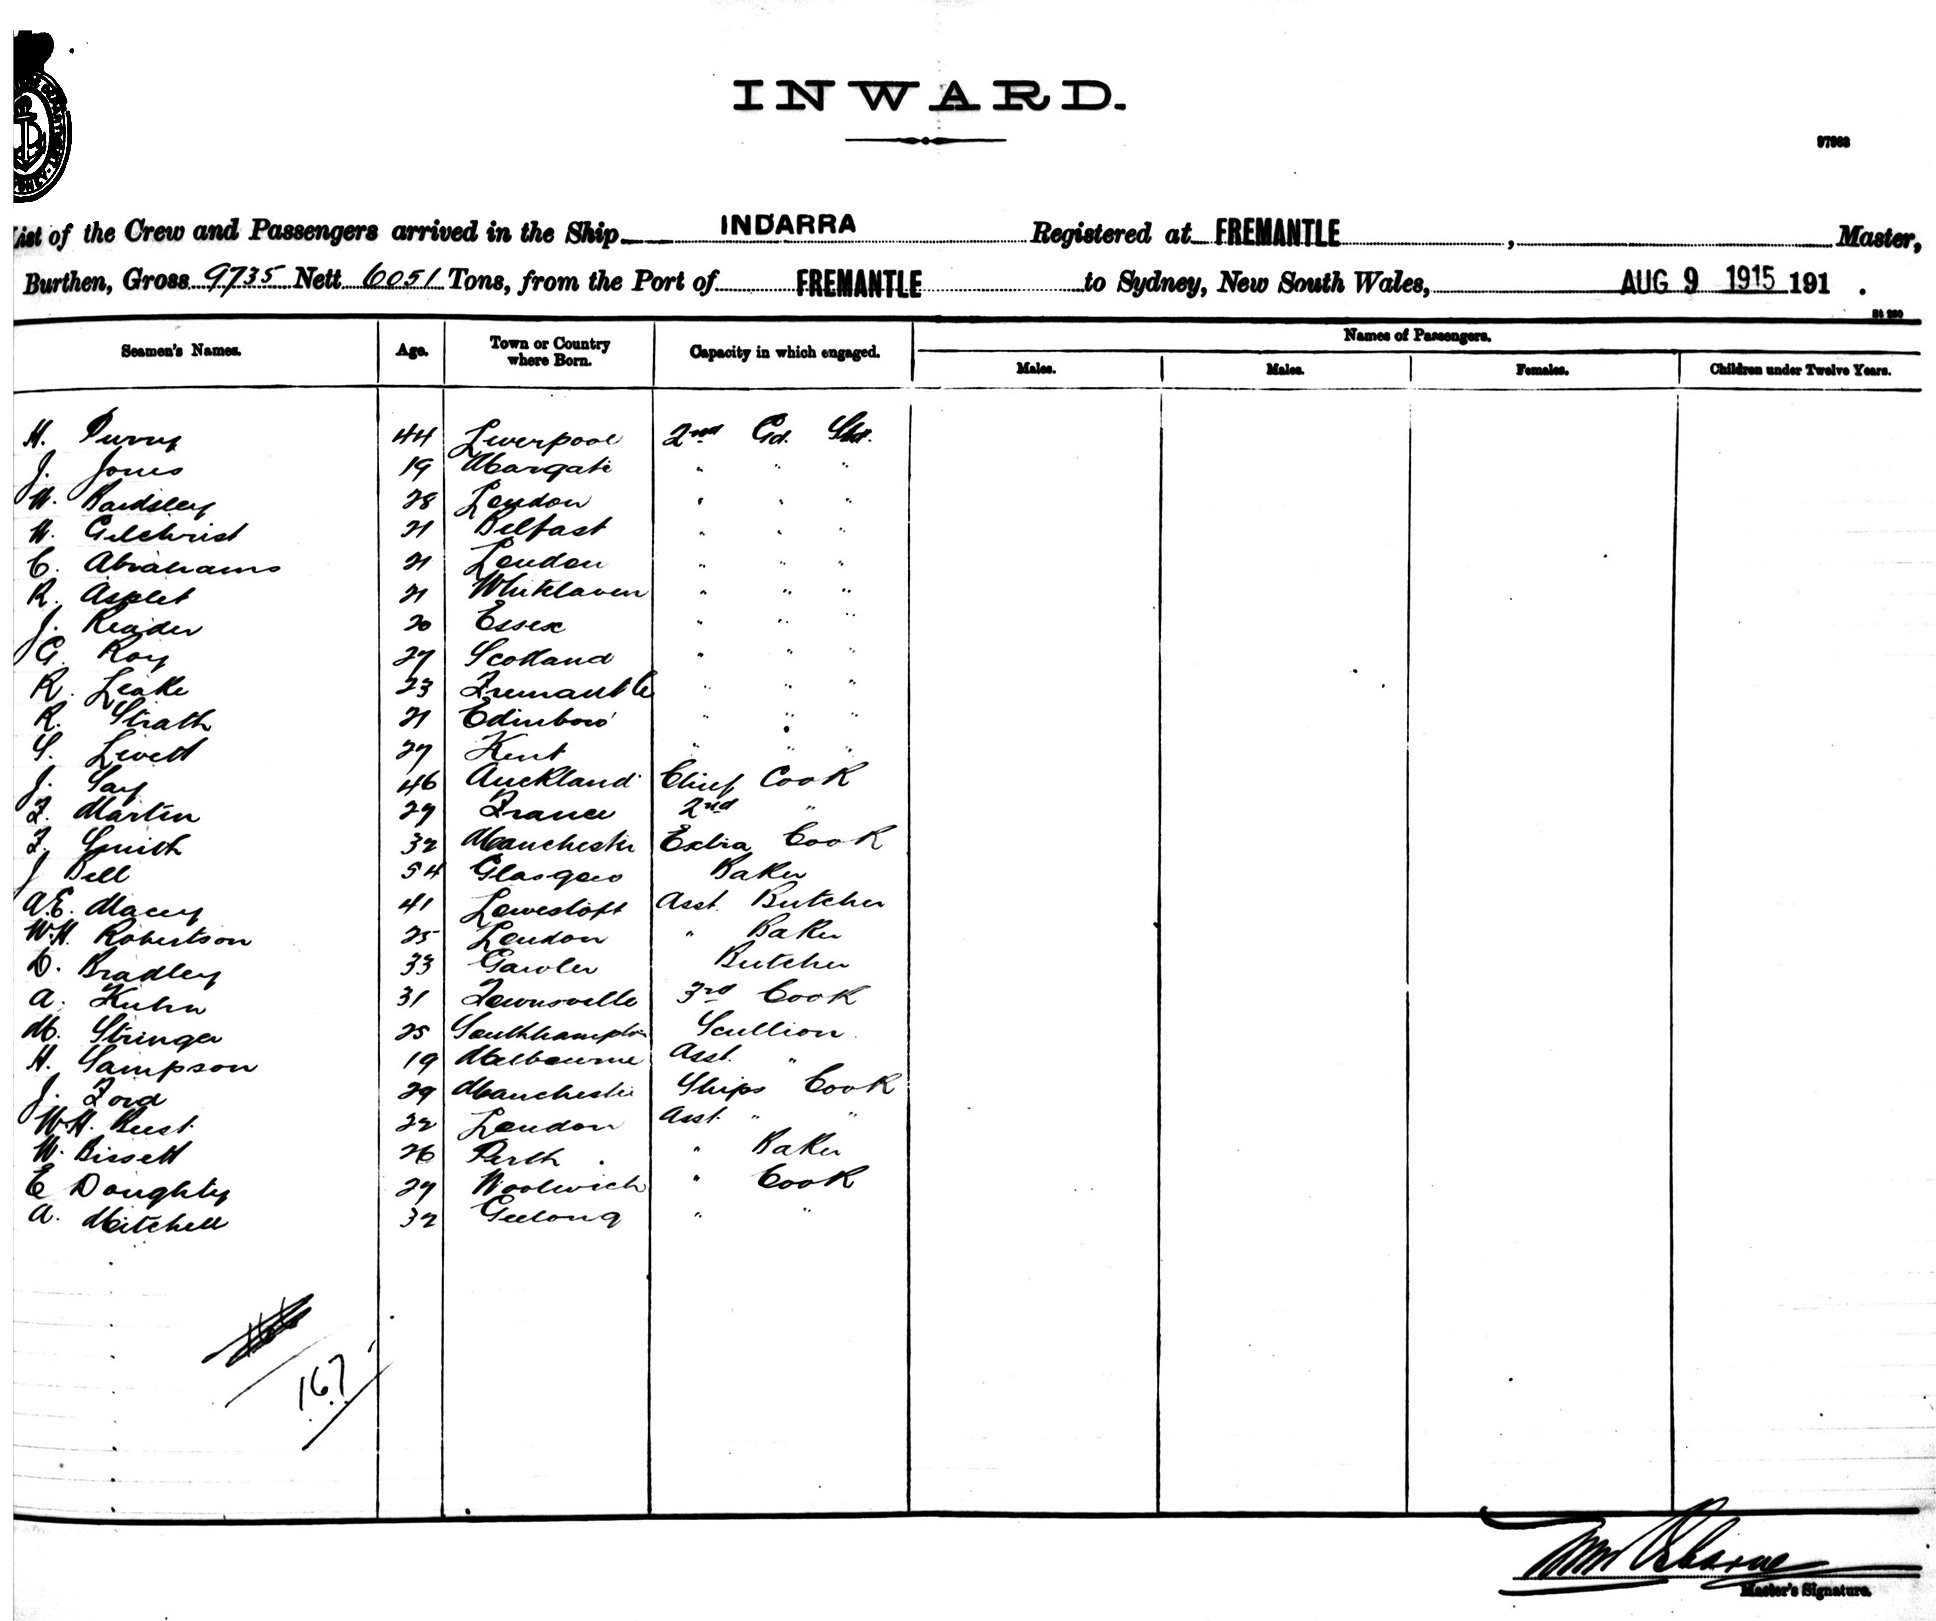 INWARD.
97963
List of the Crew and Passengers arrived in the Ship INDARRA Registered at FREMANTLE, Master,
Burthen, Gross 9735 Nett 6051 Tons, from the Port of FREMANTLE to Sydney, New South Wales, AUG 9 1915 191 .
Seamen's Names. Age. Town or Country where Born. Capacity in which engaged. Names of Passengers.
Males. Males. Females. Children under Twelve Years.
H. 44 Liverpool 2nd Gd. Std.
J. Jones 19 Margate " " "
W. Bardsley 28 London " " "
W. Gilchrist 21 Belfast " " "
C. Abrahams 21 London " " "
R. Asplet 21 Whitehaven " " "
J. Reader 20 Essex " " "
G. Roy 27 Scotland " " "
R. Leake 23 Fremantle " " "
R. Strath 21 Edinboro' " " "
S. Levett 27 Kent " " "
J. Say 46 Auckland Chief Cook
F. Martin 29 France 2nd "
F. Smith 32 Manchester Extra Cook
J Bell 54 Glasgow Baker
A.E. Macey 41 Lowestoft Asst. Butcher
W.H. Robertson 25 London " Baker
D. Bradley 33 Gawler Butcher
A. Kuhn 31 Townsville 3rd Cook
M. Stringer 25 Southhampton Scullion
H. Sampson 19 Melbourne Asst. "
J. Ford 29 Manchester Ships Cook
W.H. Bust 22 London Asst. " "
W. Bissett 26 Perth " Baker
E Doughty 29 Woolwich " Cook
A. Mitchell 32 Geelong " "
167
Wm Osborne
Master's Signature.